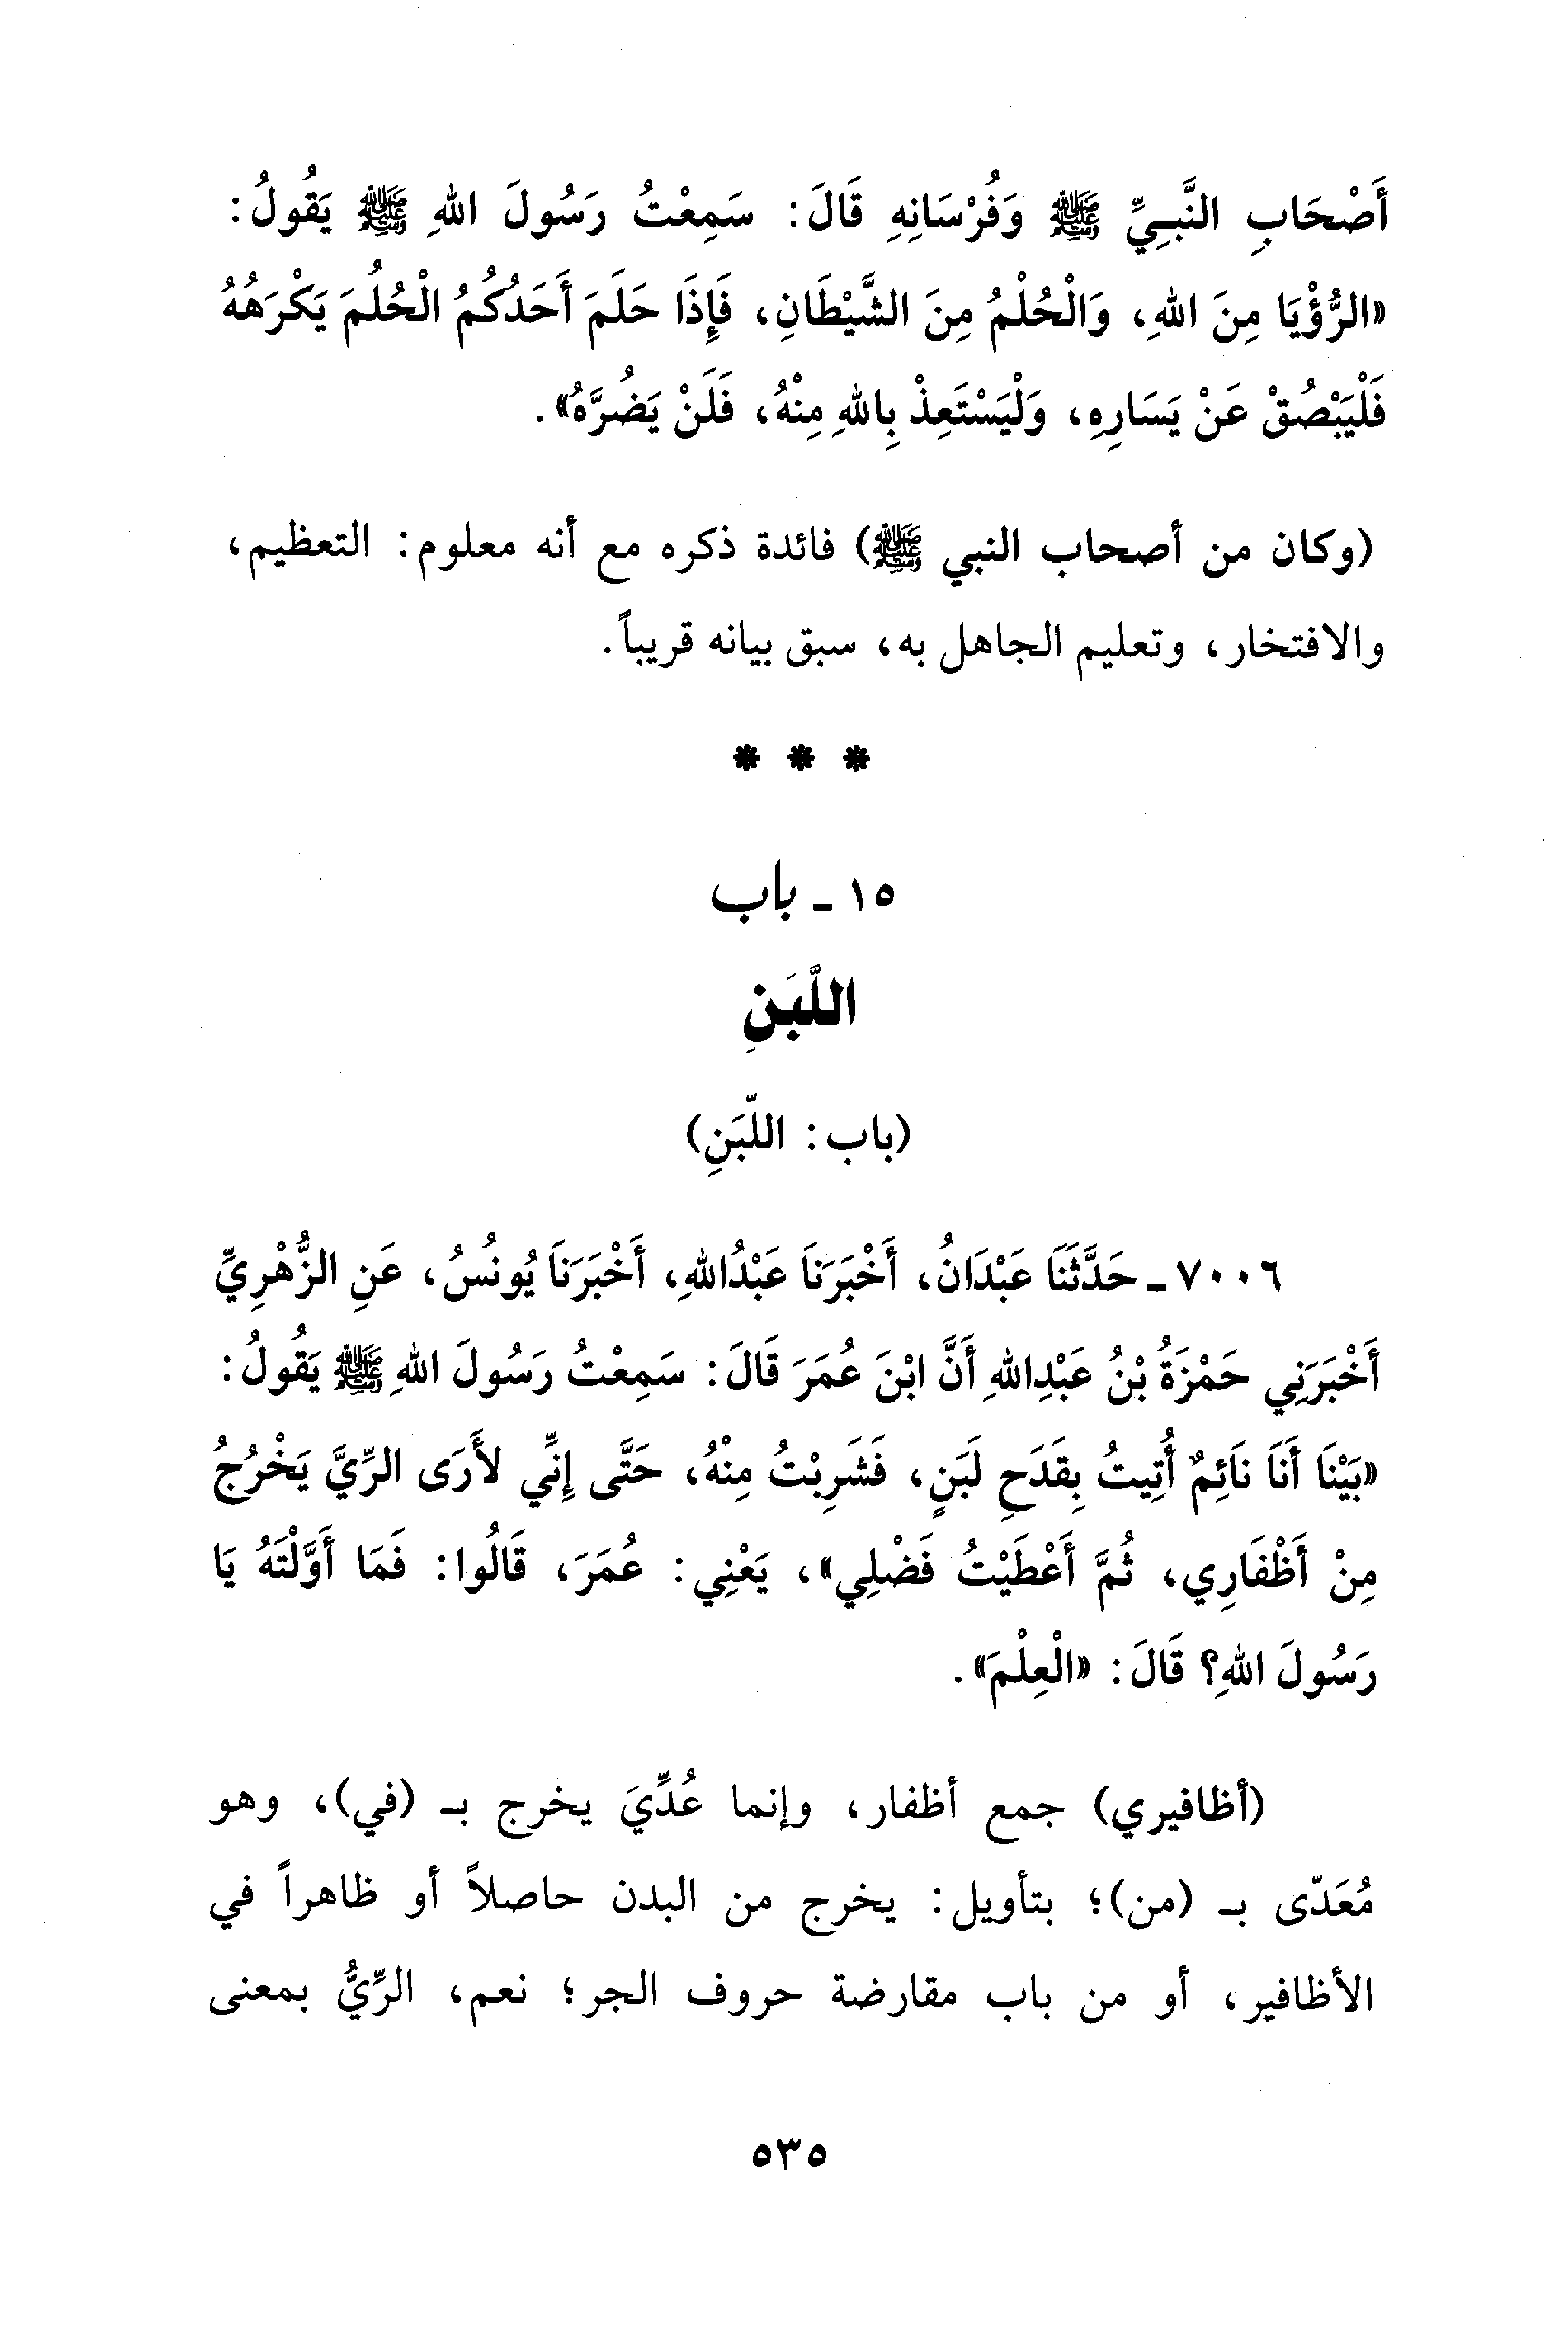 أَصْحَابِ النَّبِيِّ ﷺ وَفُرْسَانِهِ قَالَ: سَمِعْتُ رَسُولَ اللهِ ﷺ يَقُولُ:
«الرُّؤْيَا مِنَ اللهِ، وَالْحُلْمُ مِنَ الشَّيْطَانِ، فَإِذَا حَلَمَ أَحَدُكُمُ الْحُلُمَ يَكْرَهُهُ
فَلْيَبْصُقْ عَنْ يَسَارِهِ، وَلْيَسْتَعِذْ بِاللهِ مِنْهُ، فَلَنْ يَضُرَّهُ».
(وكان من أصحاب النبي ﷺ) فائدة ذكره مع أنه معلوم: التعظيم،
والافتخار، وتعليم الجاهل به، سبق بيانه قريباً.
* * *
١٥ ـ باب
اللَّبَنِ
(باب: اللّبَنِ)
٧٠٠٦ ـ حَدَّثَنَا عَبْدَانُ، أَخْبَرَنَا عَبْدُاللهِ، أَخْبَرَنَا يُونُسُ، عَنِ الزُّهْرِيِّ
أَخْبَرَنِي حَمْزَةُ بْنُ عَبْدِاللهِ أَنَّ ابْنَ عُمَرَ قَالَ: سَمِعْتُ رَسُولَ اللهِ ﷺ يَقُولُ:
«بَيْنَا أَنَا نَائِمٌ أُتِيتُ بِقَدَحِ لَبَنٍ، فَشَرِبْتُ مِنْهُ، حَتَّى إِنِّي لأَرَى الرِّيَّ يَخْرُجُ
مِنْ أَظْفَارِي، ثُمَّ أَعْطَيْتُ فَضْلِي»، يَعْنِي: عُمَرَ، قَالُوا: فَمَا أَوَّلْتَهُ يَا
رَسُولَ اللهِ؟ قَالَ: «الْعِلْمَ».
(أظافيري) جمع أظفار، وإنما عُدِّيَ يخرج بـ (في)، وهو
مُعَدّى بـ (من)؛ بتأويل: يخرج من البدن حاصلاً أو ظاهراً في
الأظافير، أو من باب مقارضة حروف الجر؛ نعم، الرِّيُّ بمعنى
٥٣٥